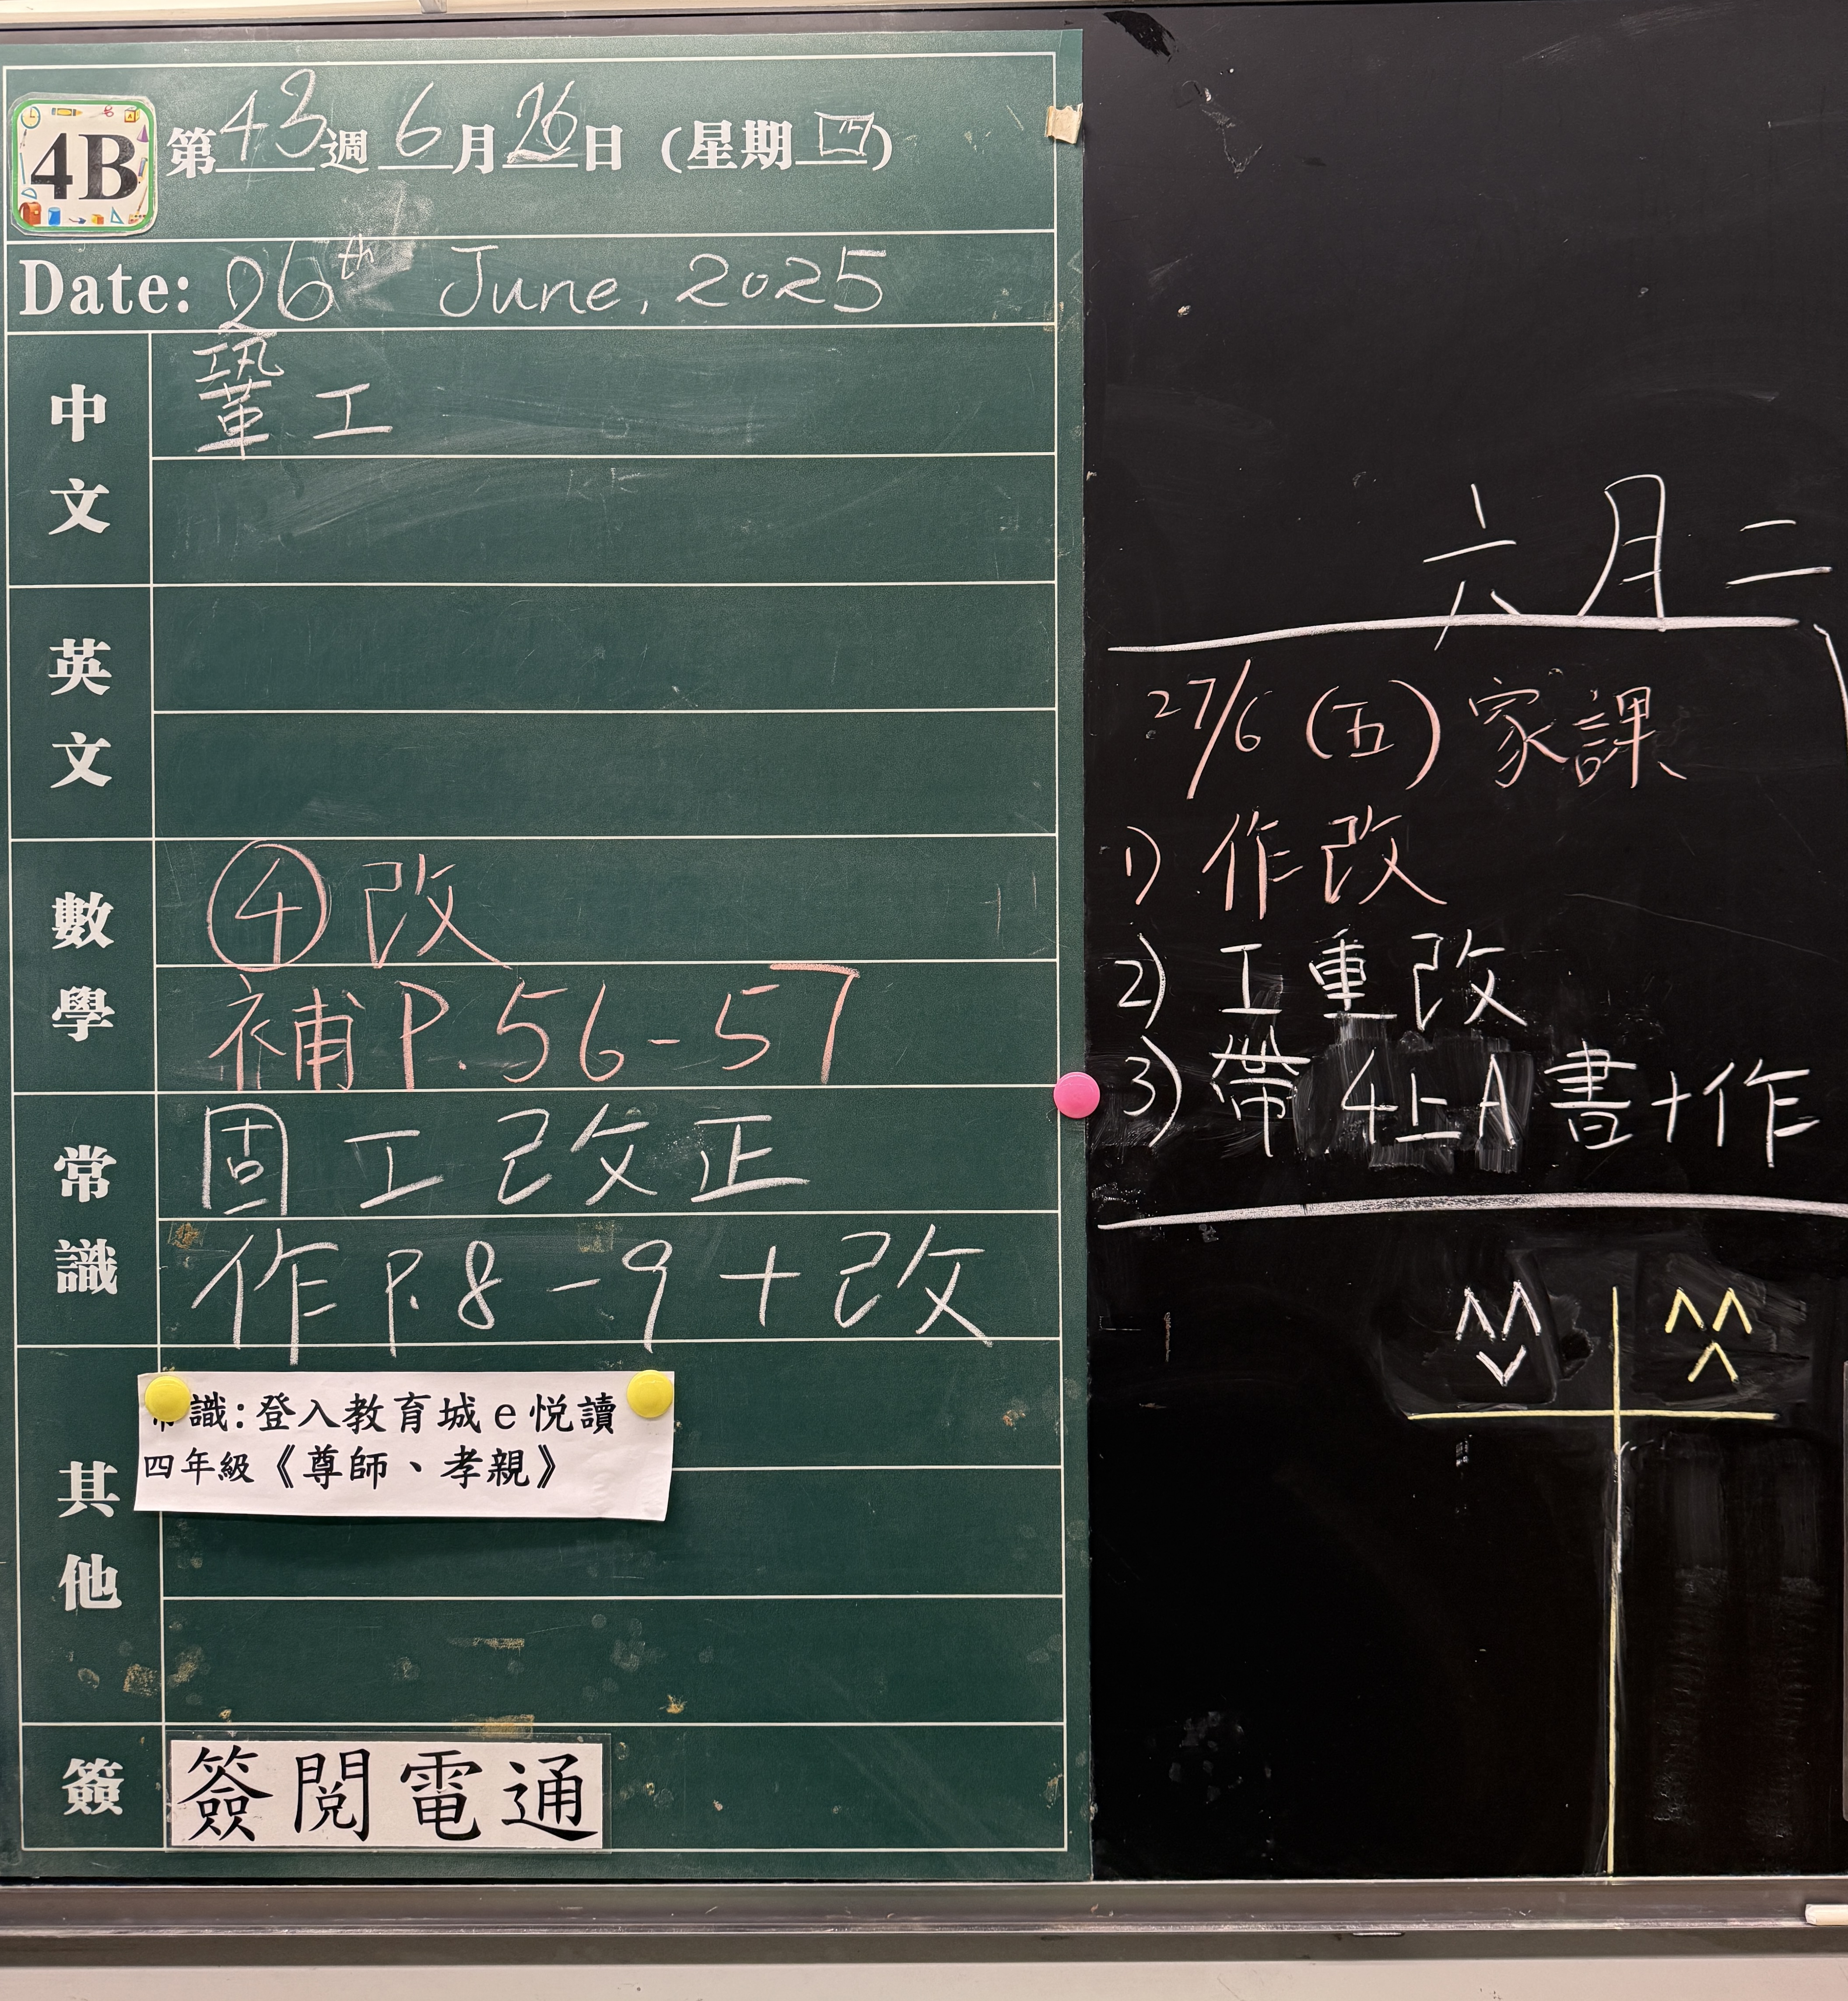 4B 第43週 6月26日 (星期四)
Date: 26th June, 2025
中文
鞏工
英文
數學
④改
補P.56-57
常識
固工改正
作P.8-9+改
其他
常識:登入教育城e悅讀
四年級《尊師、孝親》
簽
簽閱電通
六月二
27/6(五)家課
1) 作改
2) 工重改
3) 帶4上A書+作